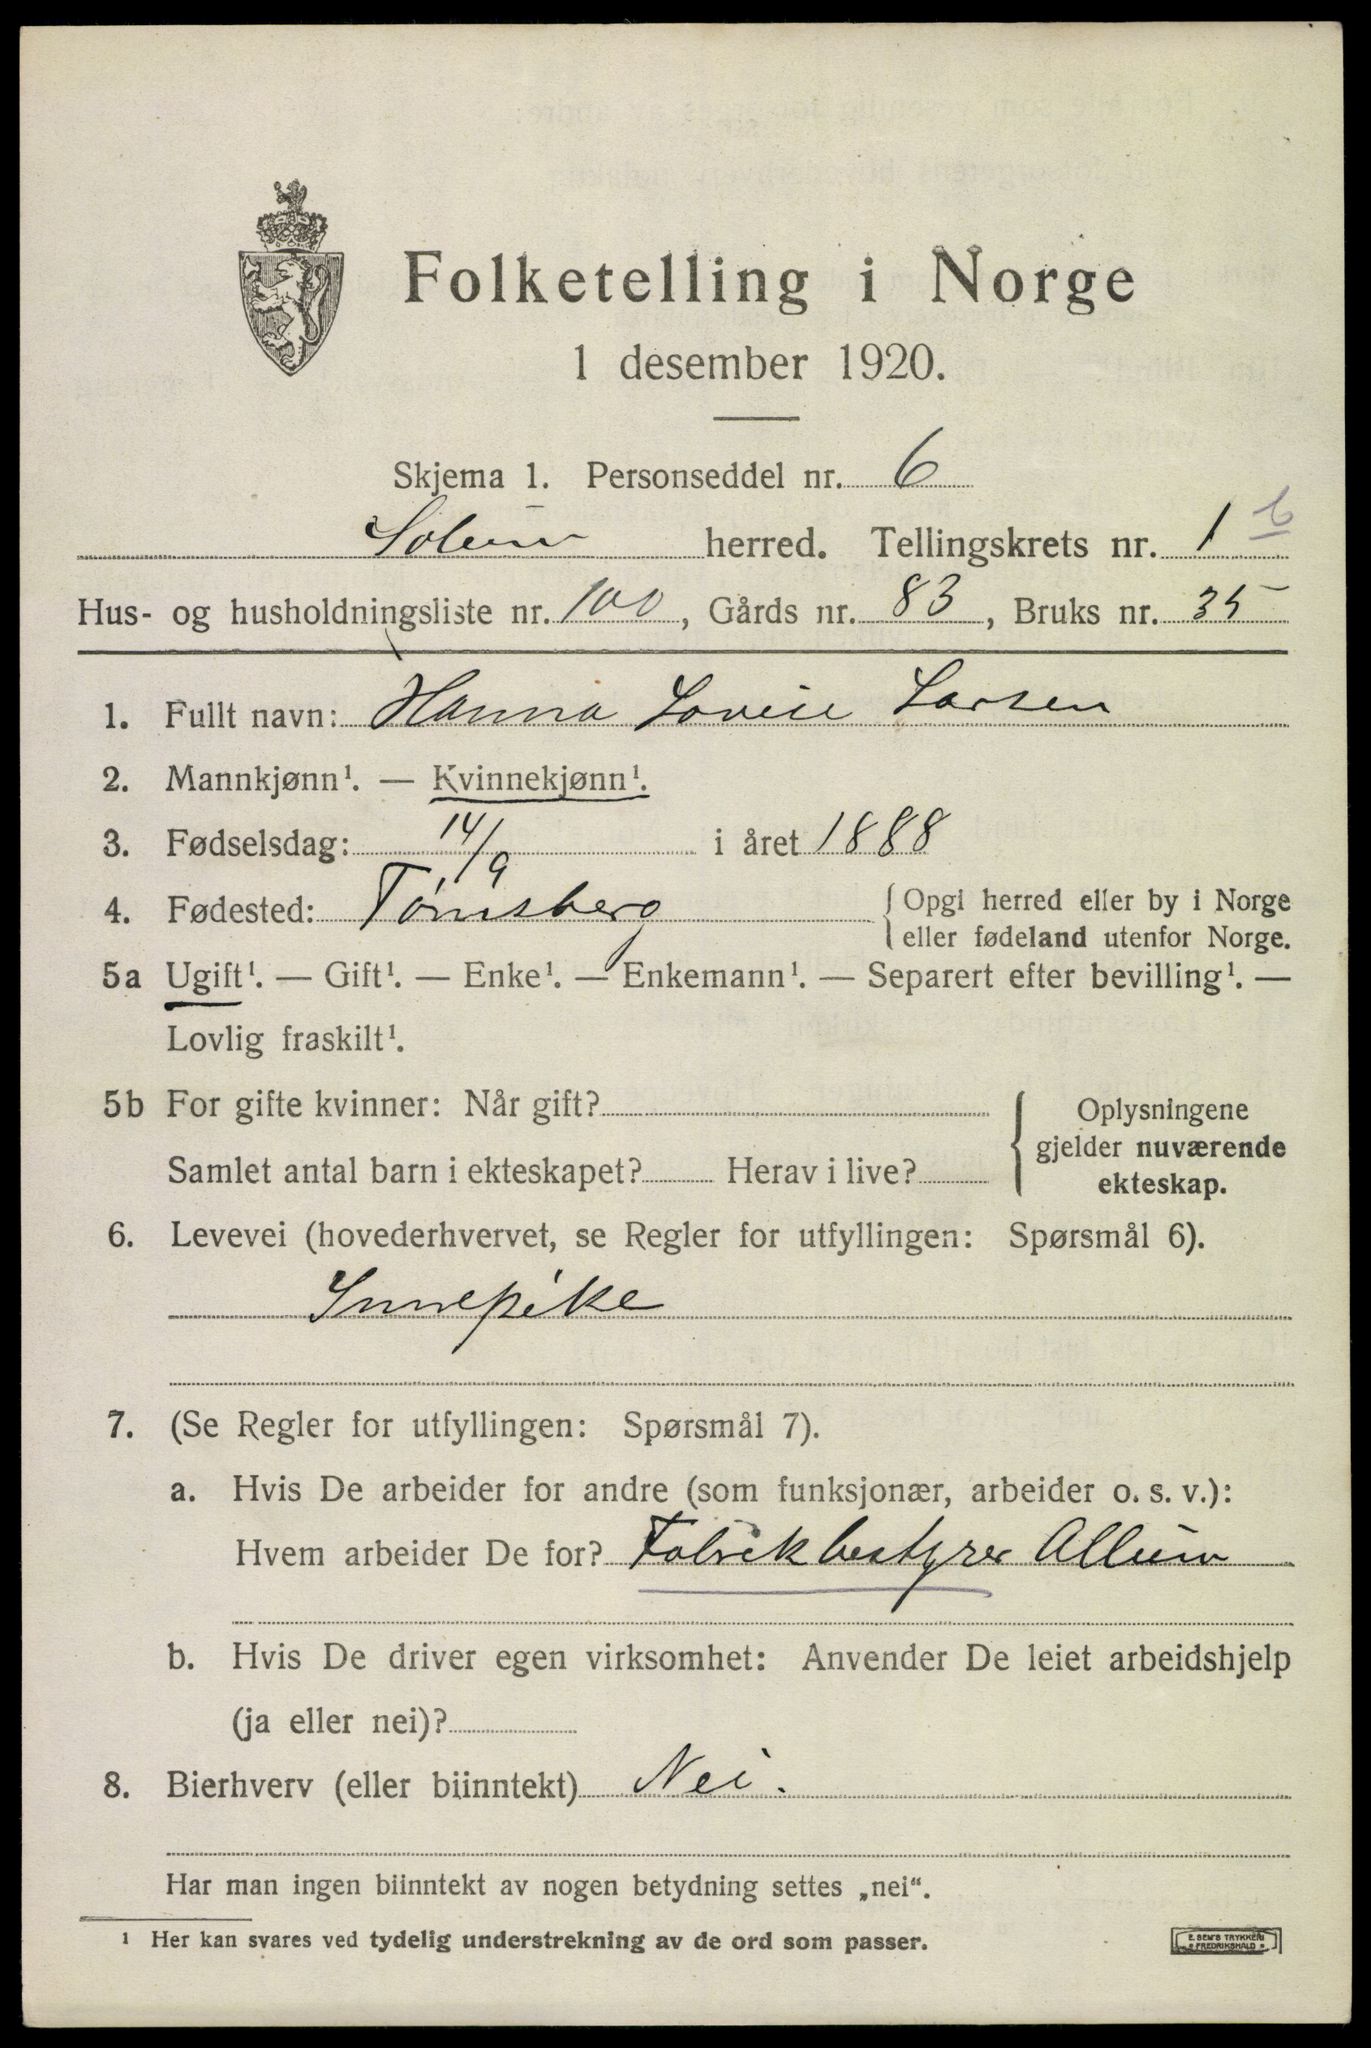 Folketelling i Norge
1 desember 1920.
Skjema 1. Personseddel nr. 6
Solum herred. Tellingskrets nr. 1 b
Hus- og husholdningsliste nr. 100, Gårds nr. 83, Bruks nr. 35
1. Fullt navn: Hanna Lovise Larsen
2. Mannkjønn¹. — Kvinnekjønn¹.
3. Fødselsdag: 14/9 i året 1888
4. Fødested: Tønsberg {Opgi herred eller by i Norge
eller fødeland utenfor Norge.
5a Ugift¹. — Gift¹. — Enke¹. — Enkemann¹. — Separert efter bevilling¹. —
Lovlig fraskilt¹.
5b For gifte kvinner: Når gift?
Samlet antal barn i ekteskapet? Herav i live?
Oplysningene
gjelder nuværende
ekteskap.
6. Levevei (hovederhvervet, se Regler for utfyllingen: Spørsmål 6).
Innepike
7. (Se Regler for utfyllingen: Spørsmål 7).
a. Hvis De arbeider for andre (som funksjonær, arbeider o. s. v.):
Hvem arbeider De for? Fabrikbestyrer Allum
b. Hvis De driver egen virksomhet: Anvender De leiet arbeidshjelp
(ja eller nei)?
8. Bierhverv (eller biinntekt) Nei.
Har man ingen biinntekt av nogen betydning settes „nei“.
¹ Her kan svares ved tydelig understrekning av de ord som passer.
E. SEM'S TRYKKERI
FREDRIKSHALD